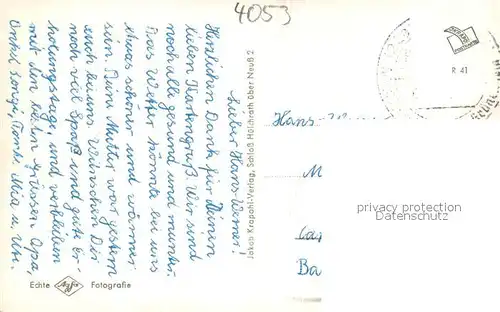 4053
Lieber Hans-Werner!
Herzlichen Dank für Deinen
lieben Kartengruß. Wir sind
noch alle gesund und munter.
Das Wetter könnte bei uns
etwas schöner und wärmer
sein. Deine Mutter war gestern
auch bei uns. Wünschen Dir
noch viel Spaß und gute Er-
holungstage, und verbleiben
mit den besten Grüssen Opa,
Onkel Tante Mia u.
Jakob Krapohl-Verlag, Schloß Hülchrath über Neuß 2
Echte Agfa Fotografie
R 41
Hans-
M
Ba
privacy protection
Datenschutz